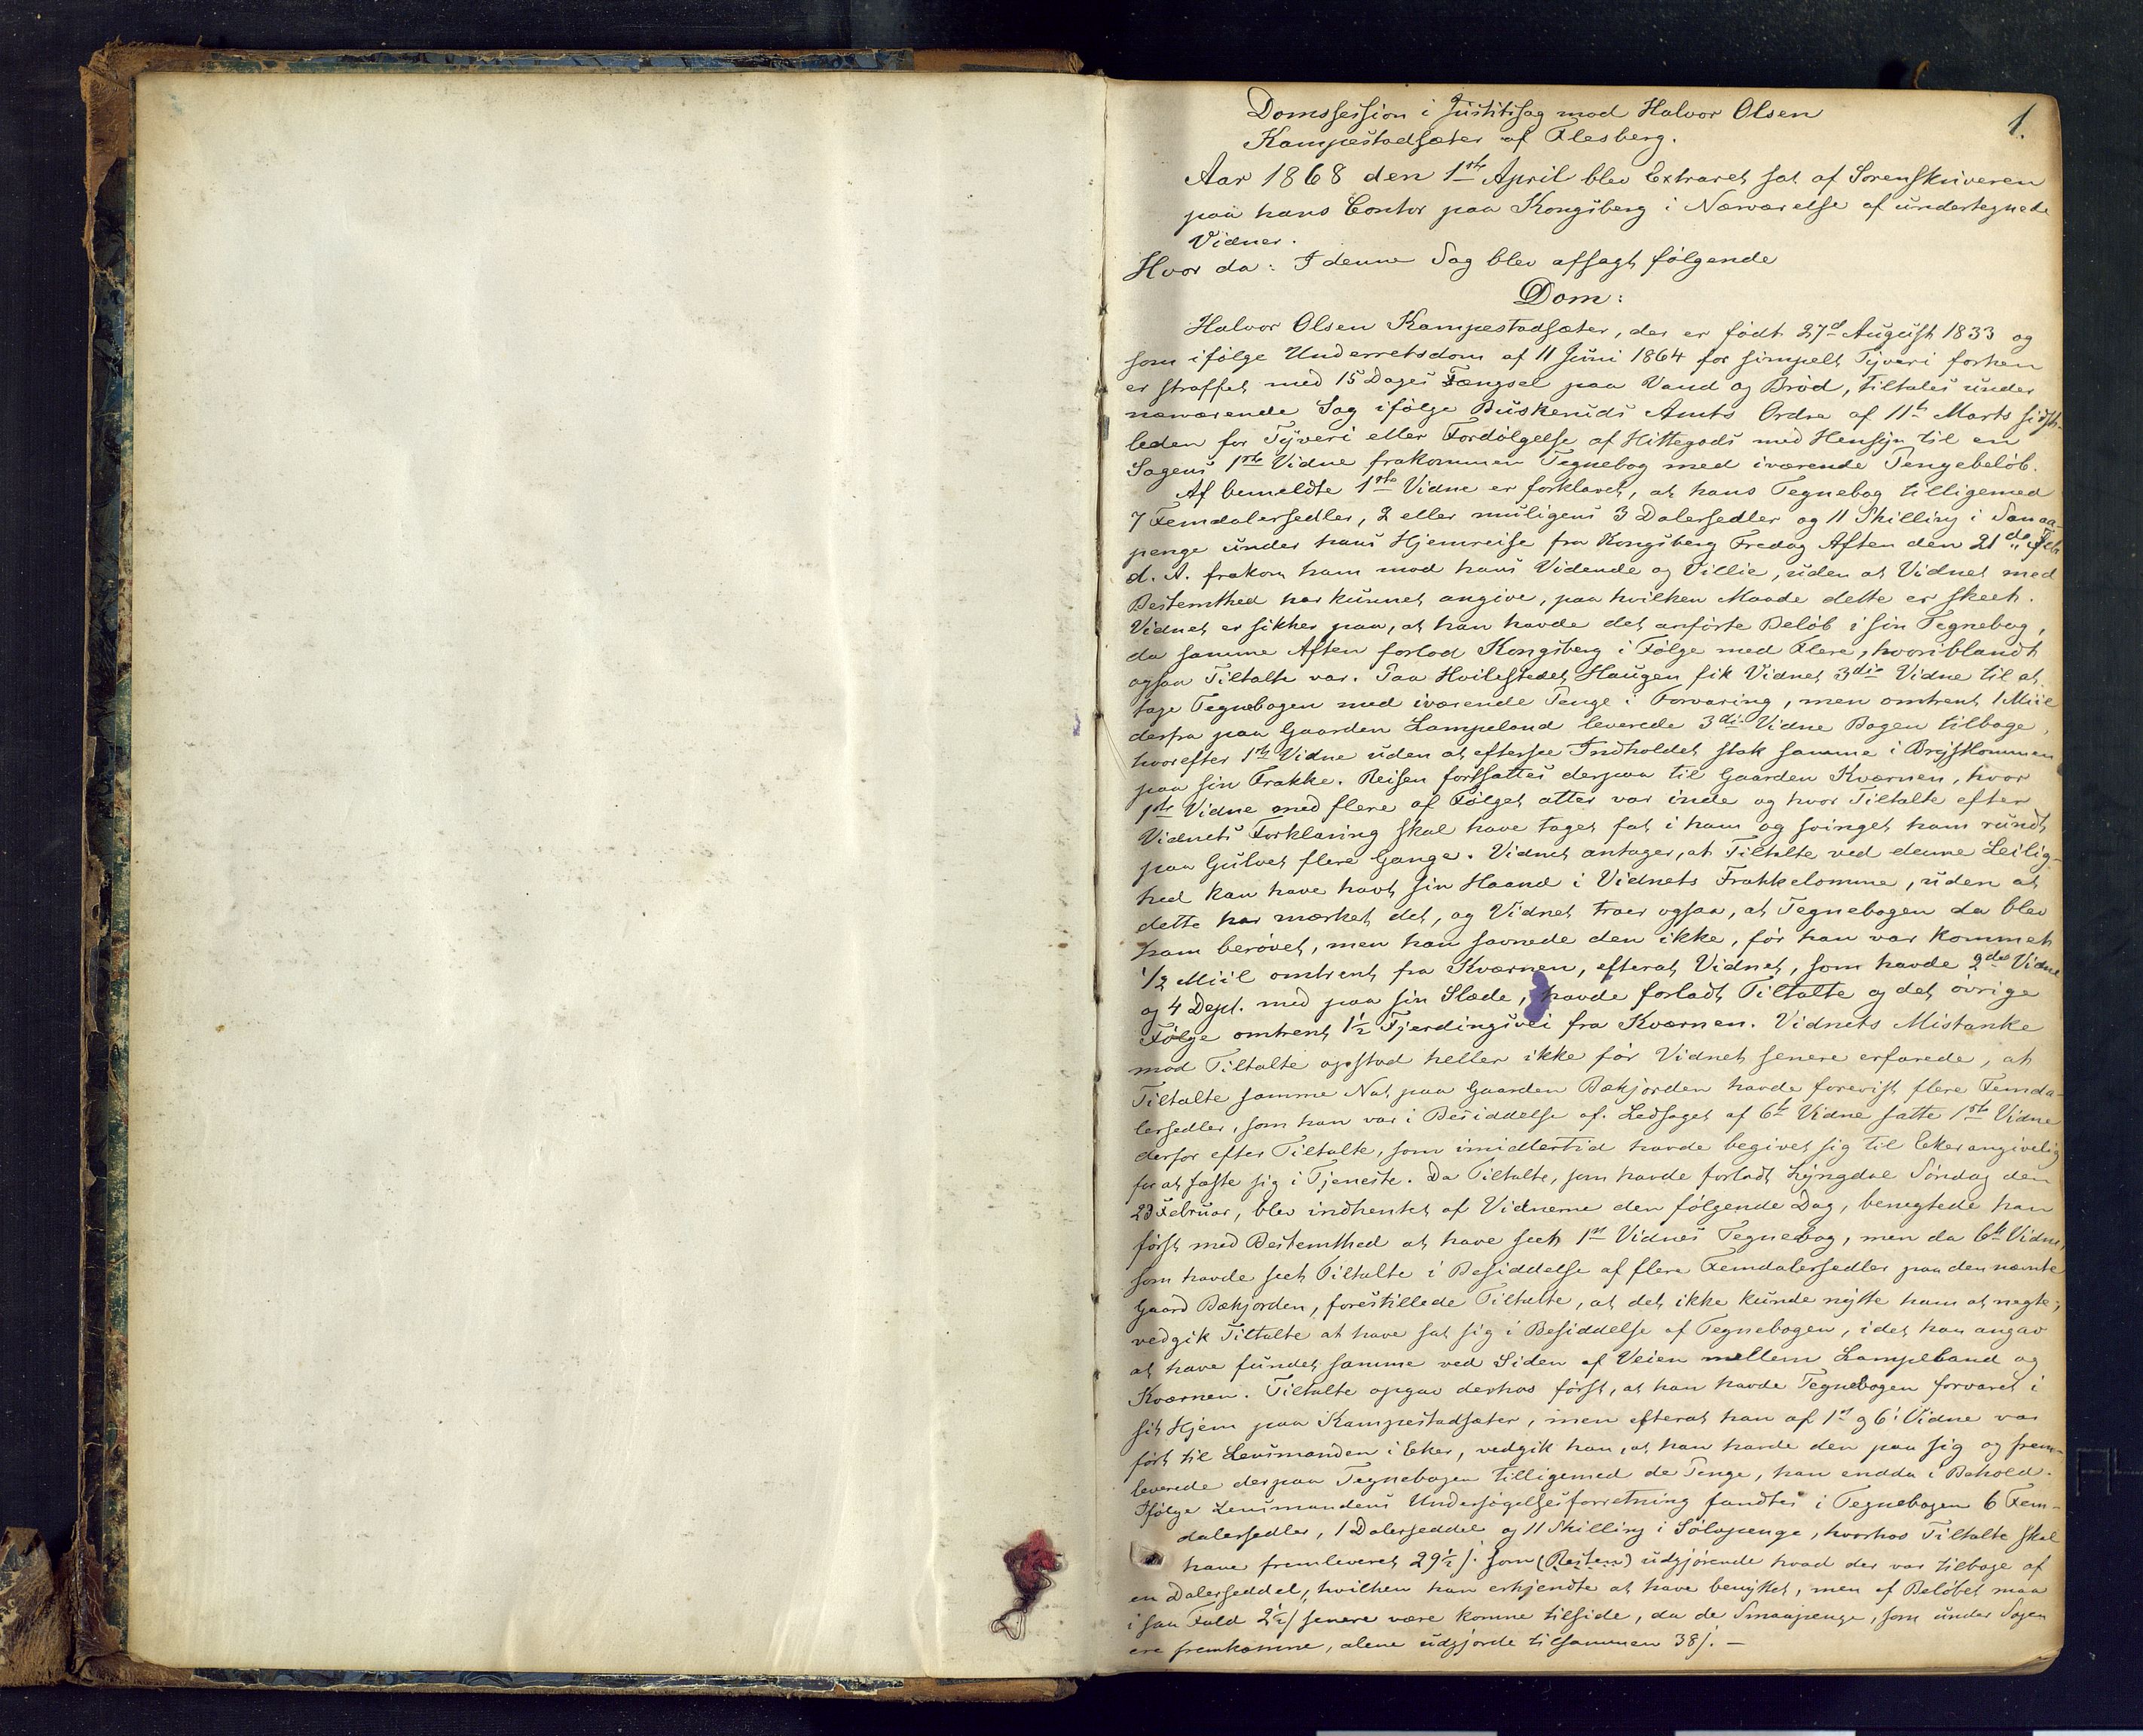 1.
Domssession i Justitssag mod Halvor Olsen
Kampestadsæter af Flesberg.
Aar 1868 den 1ste April blev Extraret sat af Sorenskriveren
paa hans Contor paa Kongsberg i Nærværelse af undertegnede
Vidner.
Hvor da: I denne Sag blev afsagt følgende
Dom:
Halvor Olsen Kampestadsæter, der er født 27de August 1833 og
som ifølge Underretsdom af 11 Juni 1864 for simpelt Tyveri forhen
er straffet med 15 Dages Fængsel paa Vand og Brød, tiltales under
nærværende Sag ifølge Buskeruds Amts Ordre af 11te Marts sidst-
leden for Tyveri eller Fordølgelse af Hittegods med Hensyn til en
Sagens 1ste Vidne frakommen Tegnebog med iværende Pengebeløb.
Af bemeldte 1ste Vidne er forklaret, at hans Tegnebog tilligemed
7 Femdalersedler, 2 eller muligens 3 Dalersedler og 11 Skilling i Smaa-
penge under hans Hjemreise fra Kongsberg Fredag Aften den 21de Feb
d. A. frakom ham mod hans Vidende og Villie, uden at Vidnet med
Bestemthed har kunnet angive, paa hvilken Maade dette er skeet.
Vidnet er sikker paa, at han havde det anførte Beløb i sin Tegnebog,
da samme Aften forlod Kongsberg i Følge med Flere, hvoriblandt
ogsaa Tiltalte var. Paa Hvilestedet Haugen fik Vidnet 3die Vidne til at
tage Tegnebogen med iværende Penge i Forvaring, men omtrent 1 Miil
derfra paa Gaarden Lampeland leverede 3die Vidne Bogen tilbage,
hvorefter 1ste Vidne uden at eftersee Indholdet stak samme i Brystlommen
paa sin Frakke. Reisen fortsattes derpaa til Gaarden Kværnen, hvor
1ste Vidne med flere af Følget atter var inde og hvor Tiltalte efter
Vidnets Forklaring skal have taget fat i ham og svinget ham rundt
paa Gulvet flere Gange. Vidnet antager, at Tiltalte ved denne Leilig-
hed kan have havt sin Haand i Vidnets Frakkelomme, uden at
dette har mærket det, og Vidnet troer ogsaa, at Tegnebogen da blev
ham berøvet, men han savnede den ikke, før han var kommet
1/2 Miil omtrent fra Kværnen, efterat Vidnet, som havde 2det Vidne
og 4 Dept. med paa sin Slæde, havde forladt Tiltalte og det øvrige
Følge omtrent 1 1/2 Fjerdingsvei fra Kværnen. Vidnets Mistanke
mod Tiltalte opstod heller ikke før Vidnet senere erfarede, at
Tiltalte samme Nat paa Gaarden Bækjorden havde forevist flere Femda-
lersedler, som han var i Besiddelse af. Ledsaget af 6te Vidne satte 1ste Vidne
derfor efter Tiltalte, som imidlertid havde begivet sig til Eker angivelig
for at fæste sig i Tjeneste. Da Tiltalte, som havde forladt Lyngdal Søndag den
23 Februar, blev indhentet af Vidnerne den følgende Dag, benegtede han
først med Bestemthed at have seet 1ste Vidnes Tegnebog, men da 6te Vidne,
som havde seet Tiltalte i Besiddelse af flere Femdalersedler paa den nævnte
Gaard Bækjorden, forestillede Tiltalte, at det ikke kunde nytte ham at negte,
vedgik Tiltalte at have sat sig i Besiddelse af Tegnebogen, idet han angav
at have fundet samme ved Siden af Veien mellem Lampeland og
Kværnen. Tiltalte opgav derhos først, at han havde Tegnebogen forvaret i
sit Hjem paa Kampestadsæter, men efterat han af 1ste og 6te Vidne var
ført til Lensmanden i Eker, vedgik han, at han havde den paa sig og frem-
leverede derpaa Tegnebogen tilligemed de Penge, han endda i Behold.
Ifølge Lensmandens Undersøgelsesforretning fandtes i Tegnebogen 6 Fem-
dalersedler, 1 Dalerseddel og 11 Skilling i Sølvpenge, hvorhos Tiltalte skal
have fremleveret 29 1/2 s. som (Resten) udgjørende hvad der var tilbage af
en Dalerseddel, hvilken han erkjendte at have benyttet, men af Beløbet maa
i saa Fald 2 1/2 s senere være komne tilside, da de Smaapenge, som under Sagen
ere fremkomne, alene udgjorde tilsammen 38 s. —